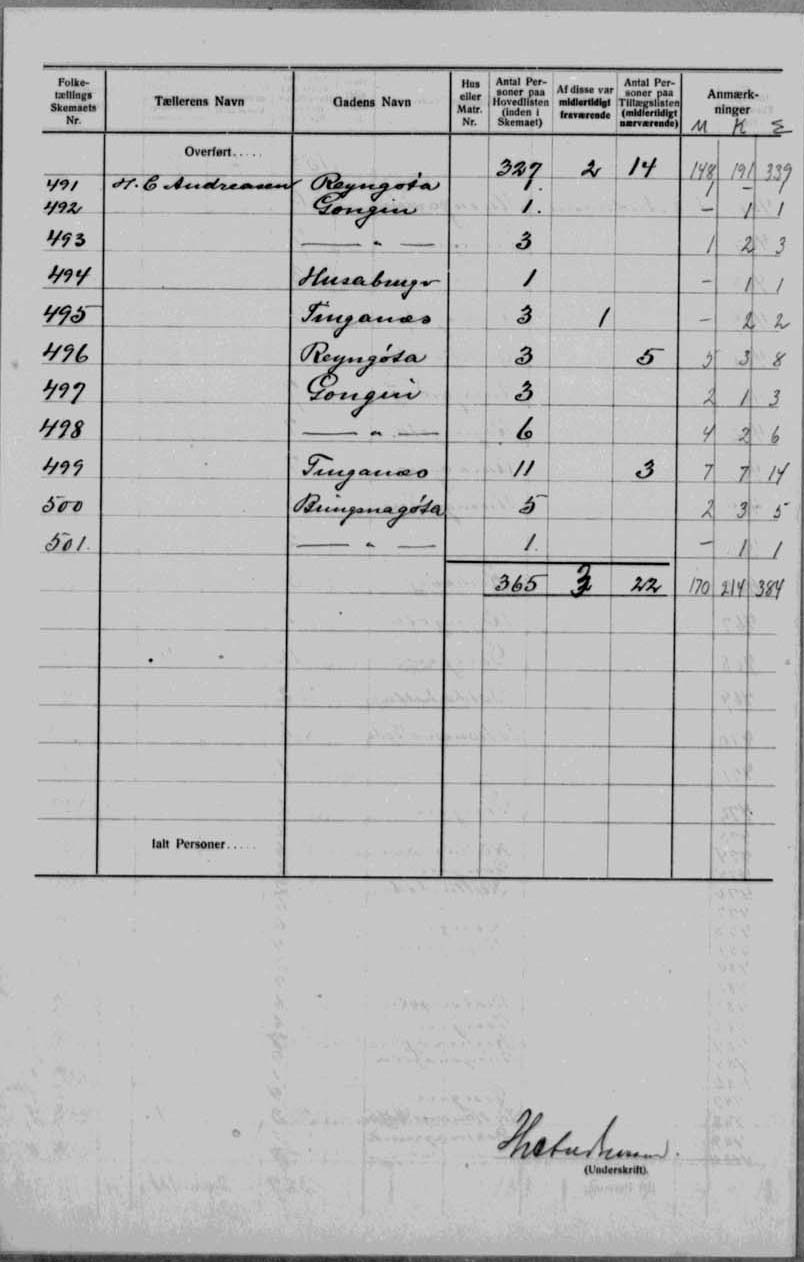 Folke-tællings Skemaets Nr. Tællerens Navn Gadens Navn Hus eller Matr. Nr. Antal Personer paa Hovedlisten (inden i Skemaet) Af disse var midlertidigt fraværende Antal Personer paa Tillægslisten (midlertidigt nærværende) Anmærkninger
M K Σ
Overført..... 327 2 14 148 191 339
491 H. C Andreasen Reyngøta 1. 1 - 1
492 Gongin 1. - 1 1
493 — " — 3 1 2 3
494 Husabrugv 1 - 1 1
495 Tinganæs 3 1 - 2 2
496 Reyngóta 3 5 5 3 8
497 Gongin 3 2 1 3
498 — " — 6 4 2 6
499 Tinganæs 11 3 7 7 14
500 Bringsnagóta 5 2 3 5
501. — " — 1. - 1 1
365 3 22 170 214 384
Ialt Personer.....
HCAndreasen.
(Underskrift).